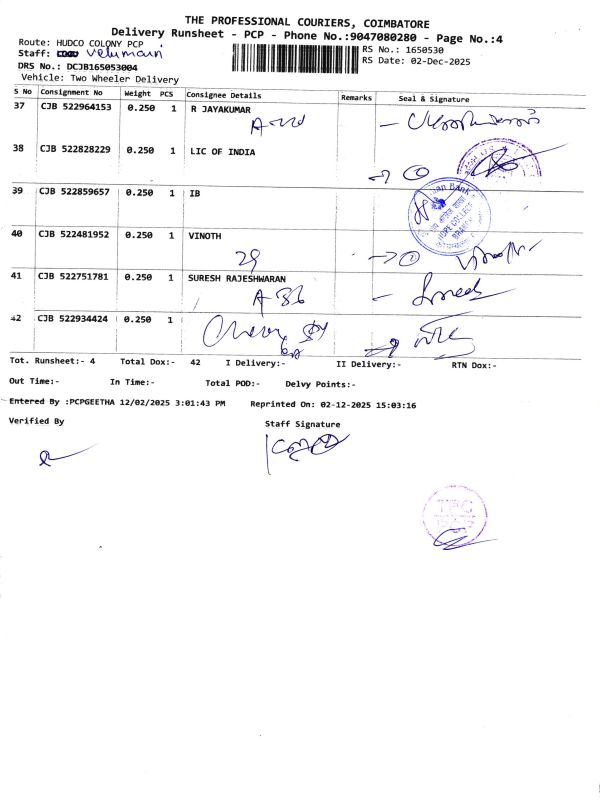 THE PROFESSIONAL COURIERS, COIMBATORE
Delivery Runsheet - PCP - Phone No.:9047080280 - Page No.:4
Route: HUDCO COLONY PCP
RS No.: 1650530
Staff: Velumani
RS Date: 02-Dec-2025
DRS No.: DCJB165053004
Vehicle: Two Wheeler Delivery
S No Consignment No Weight PCS Consignee Details Remarks Seal & Signature
37 CJB 522964153 0.250 1 R JAYAKUMAR
38 CJB 522828229 0.250 1 LIC OF INDIA
39 CJB 522859657 0.250 1 IB
40 CJB 522481952 0.250 1 VINOTH
29
41 CJB 522751781 0.250 1 SURESH RAJESHWARAN
A-36
42 CJB 522934424 0.250 1
Tot. Runsheet:- 4 Total Dox:- 42 I Delivery:- II Delivery:- RTN Dox:-
Out Time:- In Time:- Total POD:- Delvy Points:-
Entered By :PCPGEETHA 12/02/2025 3:01:43 PM Reprinted On: 02-12-2025 15:03:16
Verified By Staff Signature
TPC